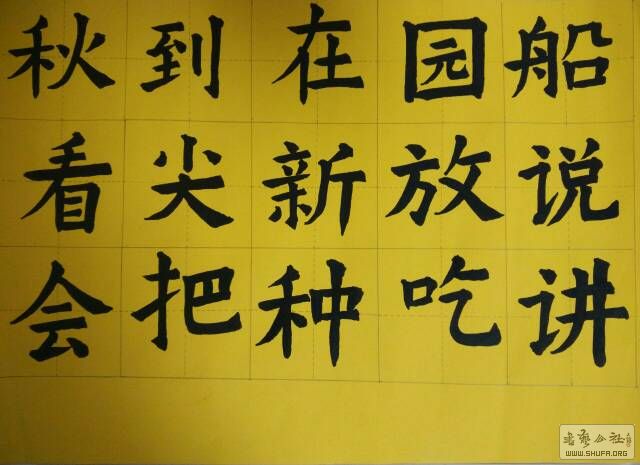 秋到在园船
看尖新放说
会把种吃讲
书艺公社
WWW.SHUFA.ORG